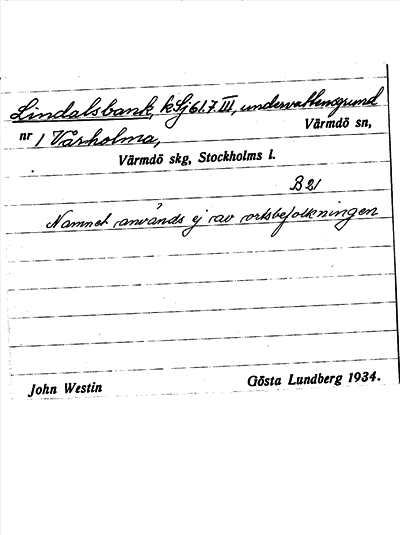 Lindalsbank, kSj 61.7.III, undervattensgrund
Värmdö sn,
nr 1 Varholma,
Värmdö skg, Stockholms l.
B21
Namnet användes ej av ortsbefolkningen
John Westin
Gösta Lundberg 1934.